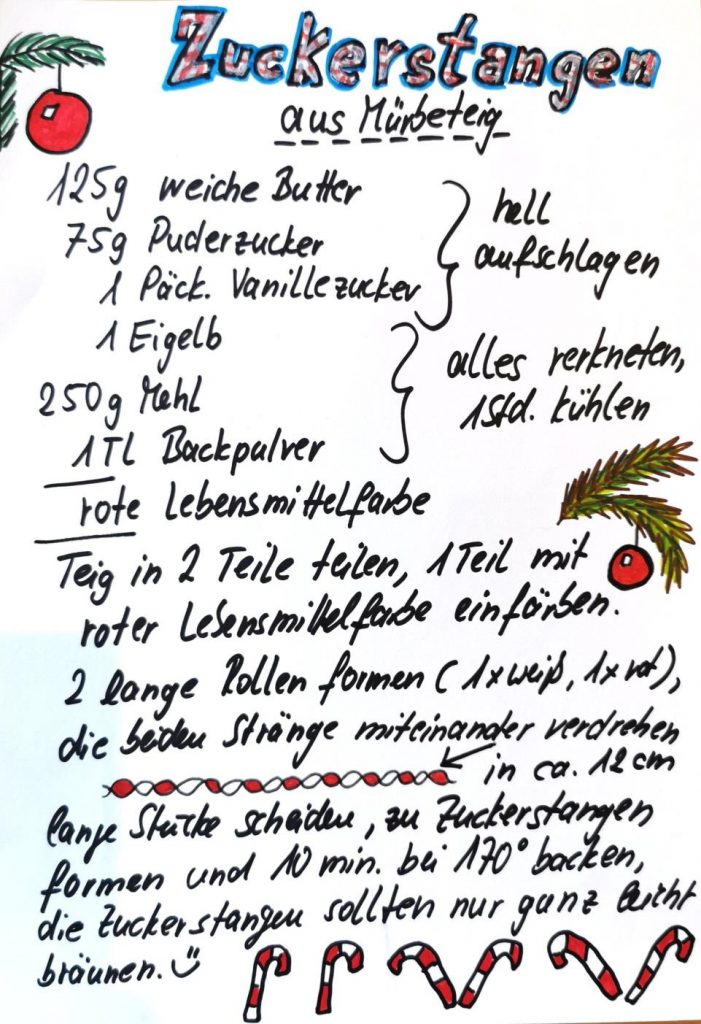 Zuckerstangen
aus Mürbeteig
125g weiche Butter
75g Puderzucker
1 Päck. Vanillezucker
hell
aufschlagen
1 Eigelb
250g Mehl
1 Tl Backpulver
alles verkneten,
1 Std. kühlen
rote Lebensmittelfarbe
Teig in 2 Teile teilen, 1 Teil mit
roter Lebensmittelfarbe einfärben.
2 lange Rollen formen (1x weiß, 1x rot),
die beiden Stränge miteinander verdrehen
in ca. 12 cm
lange Stücke scheiden, zu Zuckerstangen
formen und 10 min. bei 170° backen,
die Zuckerstangen sollten nur ganz leicht
bräunen.